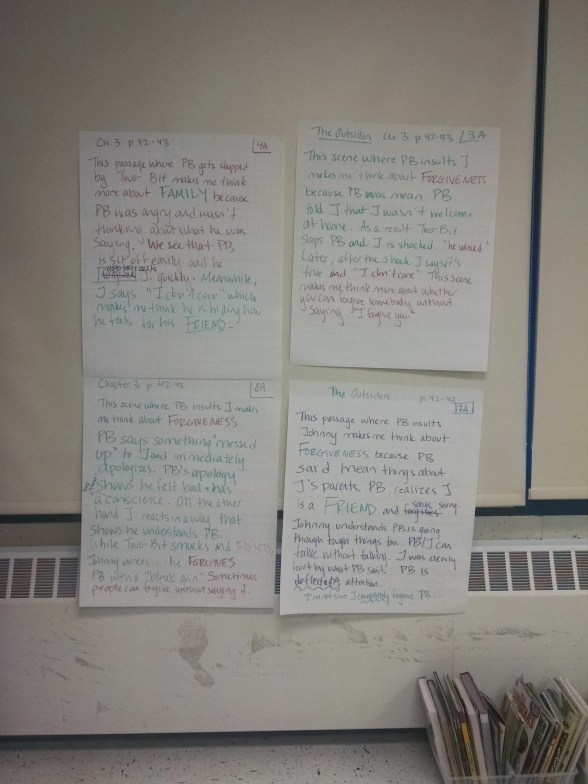 Ch. 3 p 42-43 4A
This passage where PB gets slapped
by Two-Bit makes me think
more about FAMILY because
PB was angry and wasn't
thinking about what he was
saying. We see that PB
is set off easily and he
apologizes
J. quickly. Meanwhile,
J says "I don't care" which
makes me think he is hiding how
he feels for his FRIEND-
The Outsiders Ch. 3 p 42-43 3A
This scene where PB insults J
makes me think about FORGIVENESS
because PB was mean PB
told J that J wasn't welcome
at home. As a result Two-Bit
slaps PB and J is shocked. "he winced."
Later, after the shock J says it's
true and "I don't care" This scene
makes me think more about whether
you can forgive somebody without
saying "I forgive you."
Chapter 3 p 42-43 8A
This scene where PB insults J makes
me think about FORGIVENESS
PB says something "messed
up" to J and immediately
apologizes. PB's apology
shows he felt bad + has
a conscience. On the other
hand J reacts in a way that
shows he understands PB.
While Two-Bit smacks and
Johnny winces... he FORGIVES
PB with a "bleak grin" Sometimes
people can forgive without saying it.
The Outsiders p. 42-43
7A
This passage where PB insults
Johnny makes me think about
FORGIVENESS because PB
said mean things about
J's parents. PB realizes J
is a FRIEND and says sorry.
Johnny understands PB is going
though tough things too. PB/J can
talk without talking. J was clearly
hurt by what PB said. PB is
deflecting attention.
I'm not sure J completely forgave PB.